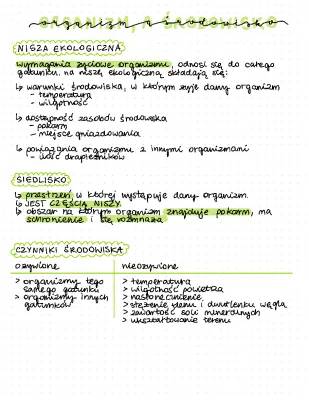 organizm a środowisko
NISZA EKOLOGICZNA
wymagania życiowe organizmu, odnosi się do całego
gatunku. na niszę ekologiczną składają się:
↳ warunki środowiska, w którym żyje dany organizm
- temperatura
- wilgotność
↳ dostępność zasobów środowiska
- pokarm
- miejsce gniazdowania
↳ powiązania organizmu z innymi organizmami
- ilość drapieżników
SIEDLISKO
↳ przestrzeń w której występuje dany organizm.
↳ JEST CZĘŚCIĄ NISZY
↳ obszar na którym organizm znajduje pokarm, ma
schronienie i się rozmnaża
CZYNNIKI ŚRODOWISKA
ożywione nieożywione
> organizmy tego
samego gatunku
> organizmy innych
gatunków
> temperatura
> wilgotność powietrza
> nasłonecznienie
> stężenie tlenu i dwutlenku węgla
> zawartość soli mineralnych
> ukształtowanie terenu